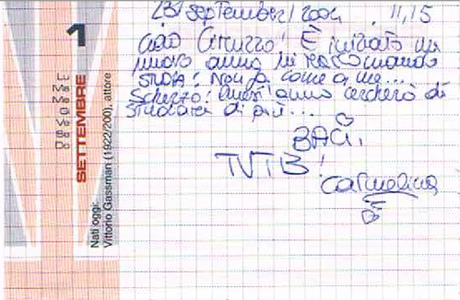 1
SETTEMBRE
Lu
Ma
Me
Gi
Ve
Sa
Do
Nati oggi:
Vittorio Gassman (1922/200), attore
13/september/2004 11,15
Ciao Ciruzzo! È iniziato un
nuovo anno mi raccomando
studia! Non fa come a me...
Scherzo! Quest'anno cercherò di
studiare di più...
BACI,
TVTB!
Carmelina